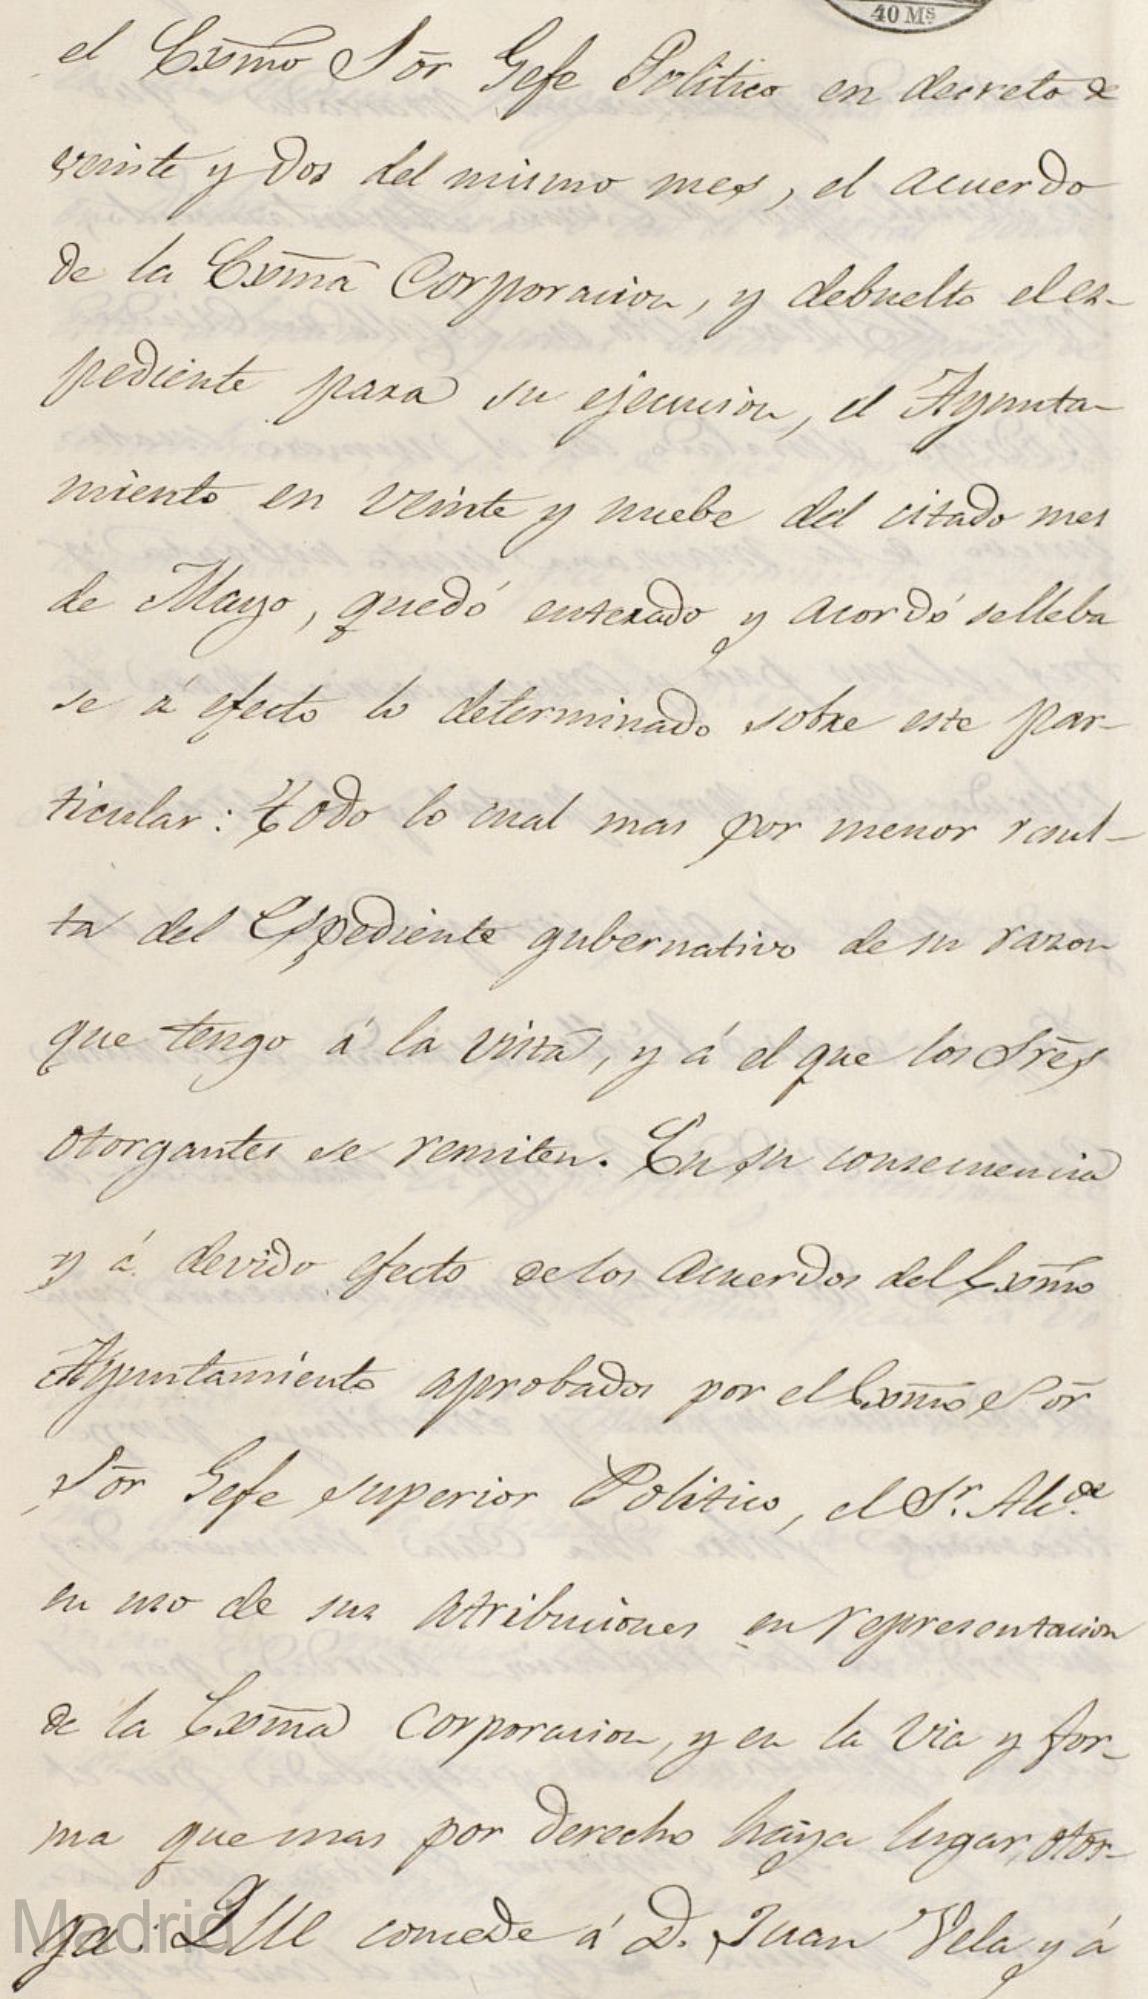 40 Ms
el Exsmo Sōr Gefe Politico en decreto de
veinte y dos del mismo mes, el acuerdo
de la Exsma Corporacion, y debuelto el es-
pediente para su ejecucion, el Ayunta-
miento en veinte y nuebe del citado mes
de Mayo, quedó enterado y acordó selleba
se á efecto lo determinado sobre este par-
ticular: Todo lo cual mas por menor resul-
ta del Espediente gubernativo de su razon
que tengo á la vista, y á el que los Srēs
otorgantes se remiten. En su consecuencia
y á devido efecto de los acuerdos del Exsmo
Ayuntamiento aprobados por el Exsmo Sōr
Sōr Gefe superior Politico, el Sr. Alcde
en uso de sus atribuciones en representacion
de la Exsma Corporacion, y en la via y for-
ma que mas por derecho haya lugar, otor-
ga: Que concede á D. Juan Vela y á
Madrid